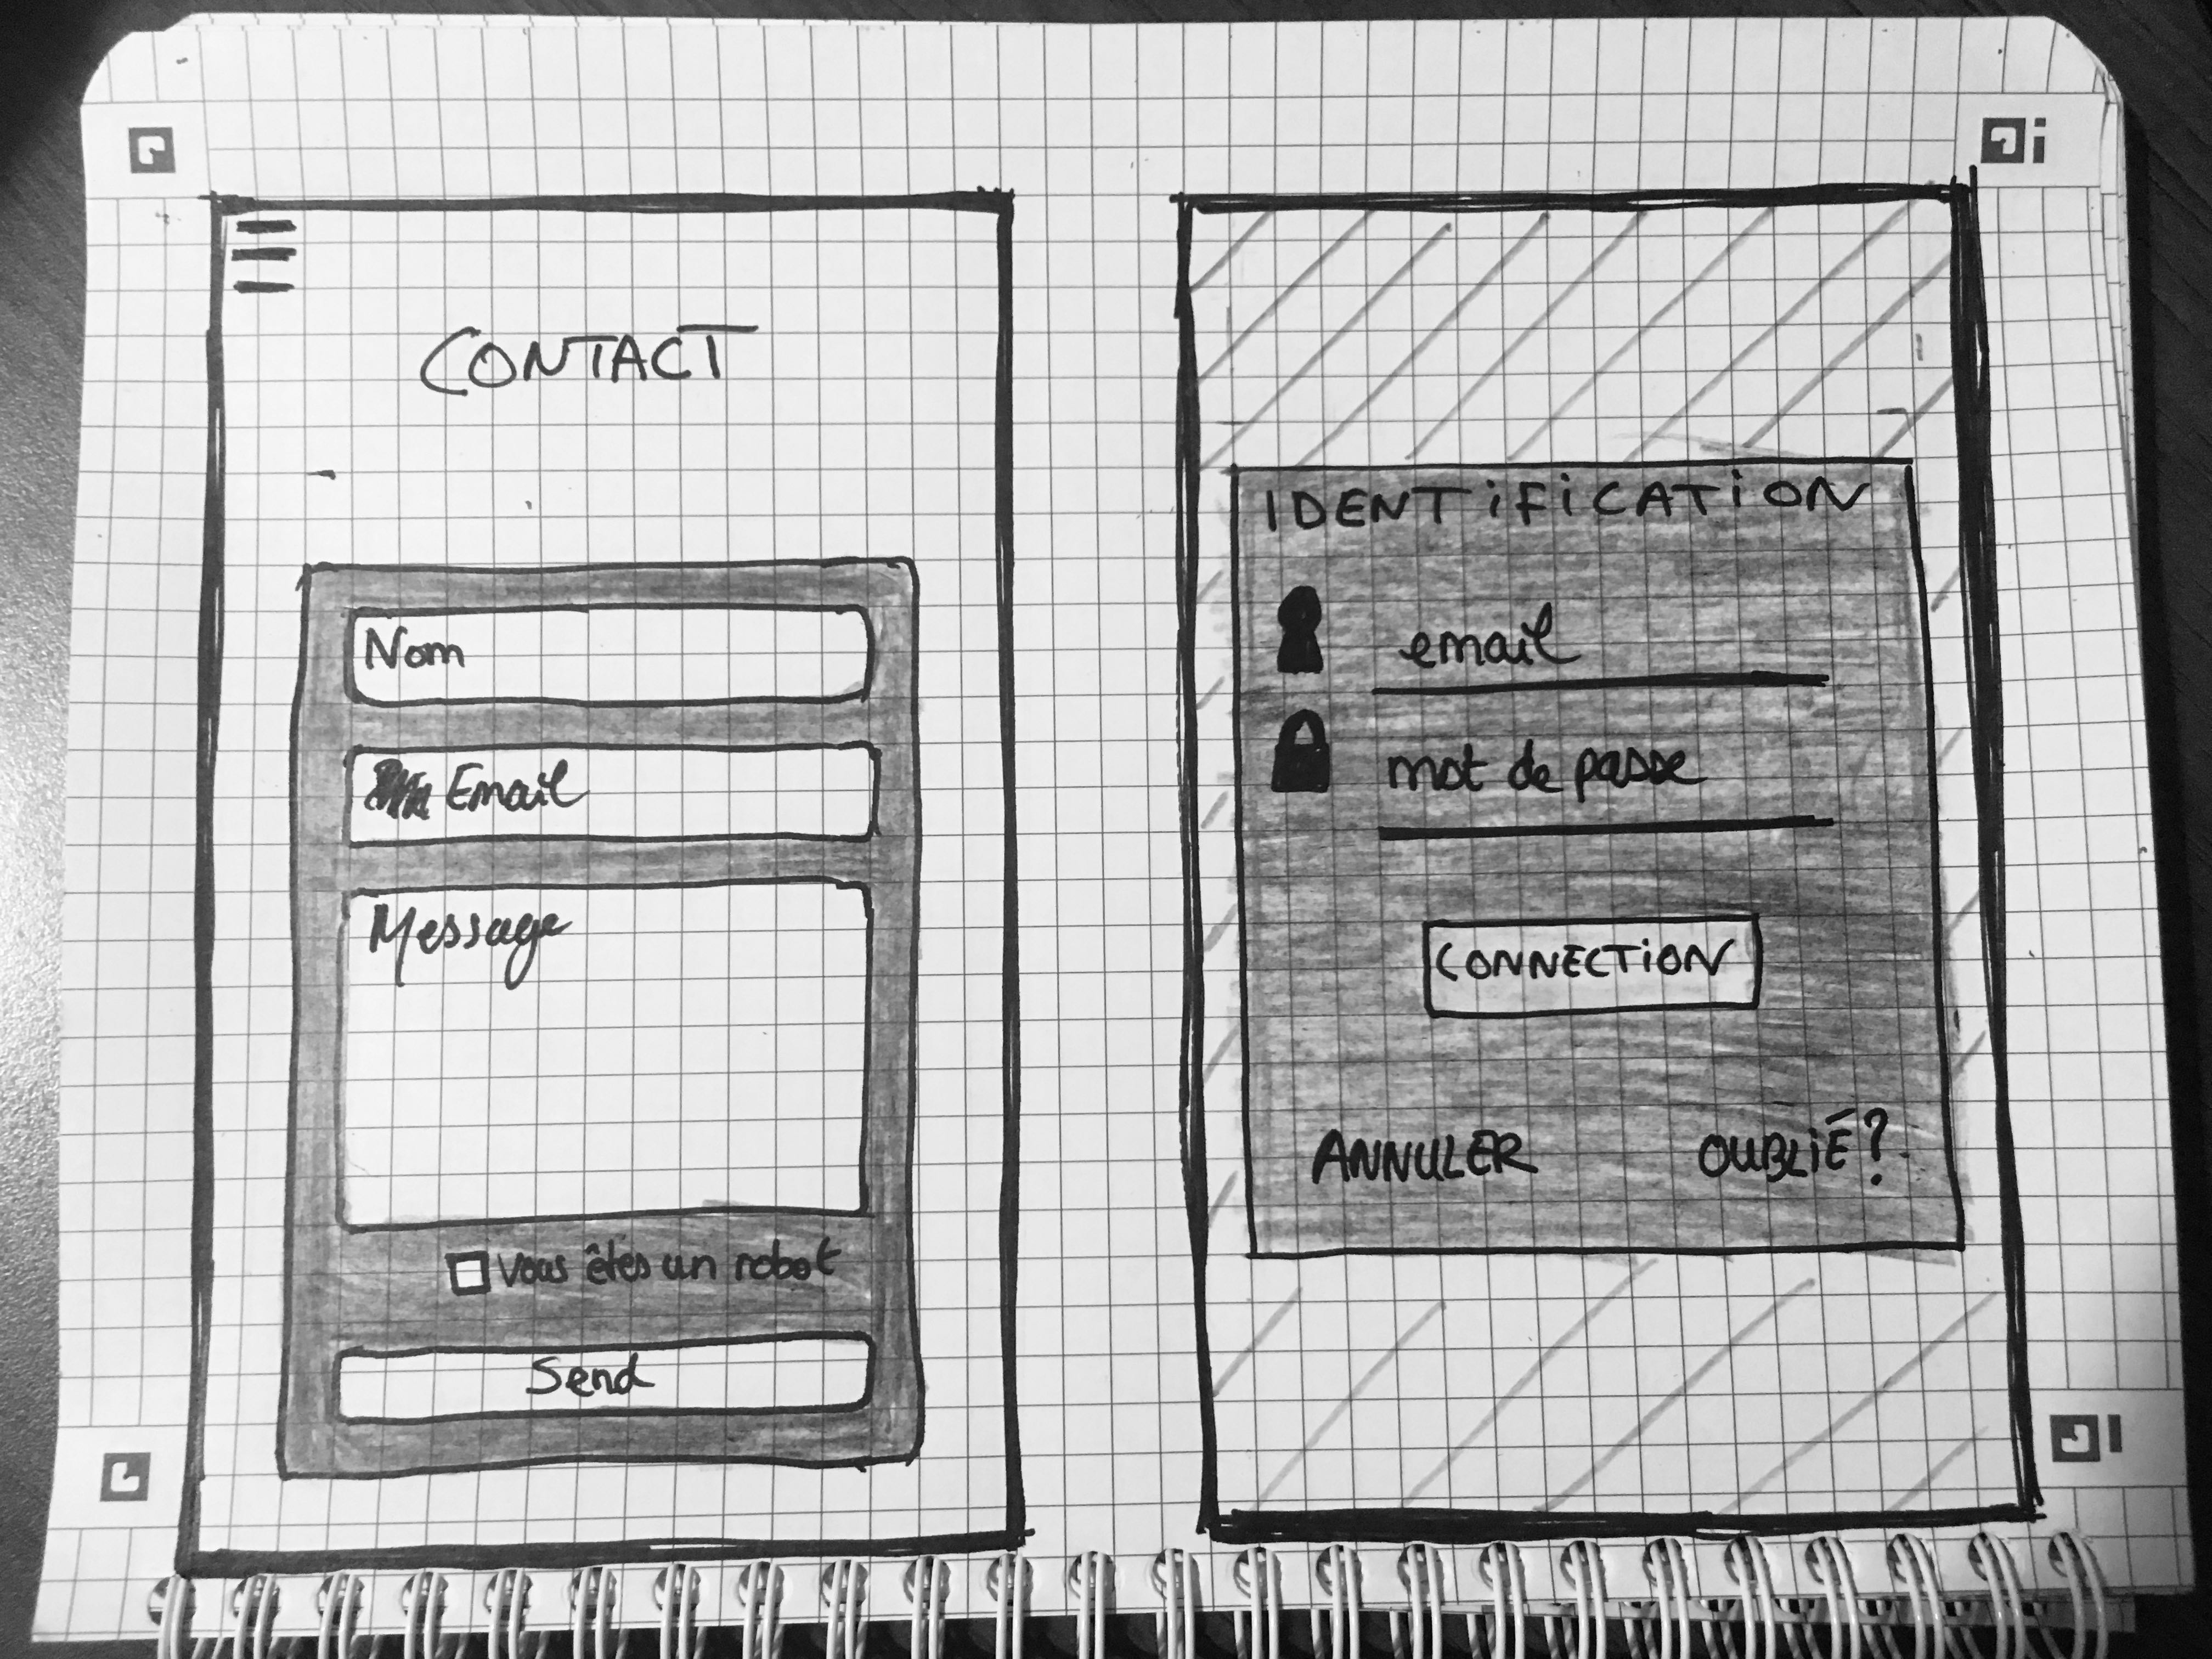 CONTACT
Nom
Email
Message
Vous êtes un robot
Send
IDENTiFiCATiON
email
mot de passe
CONNECTiON
ANNULER
OUBLiÉ?